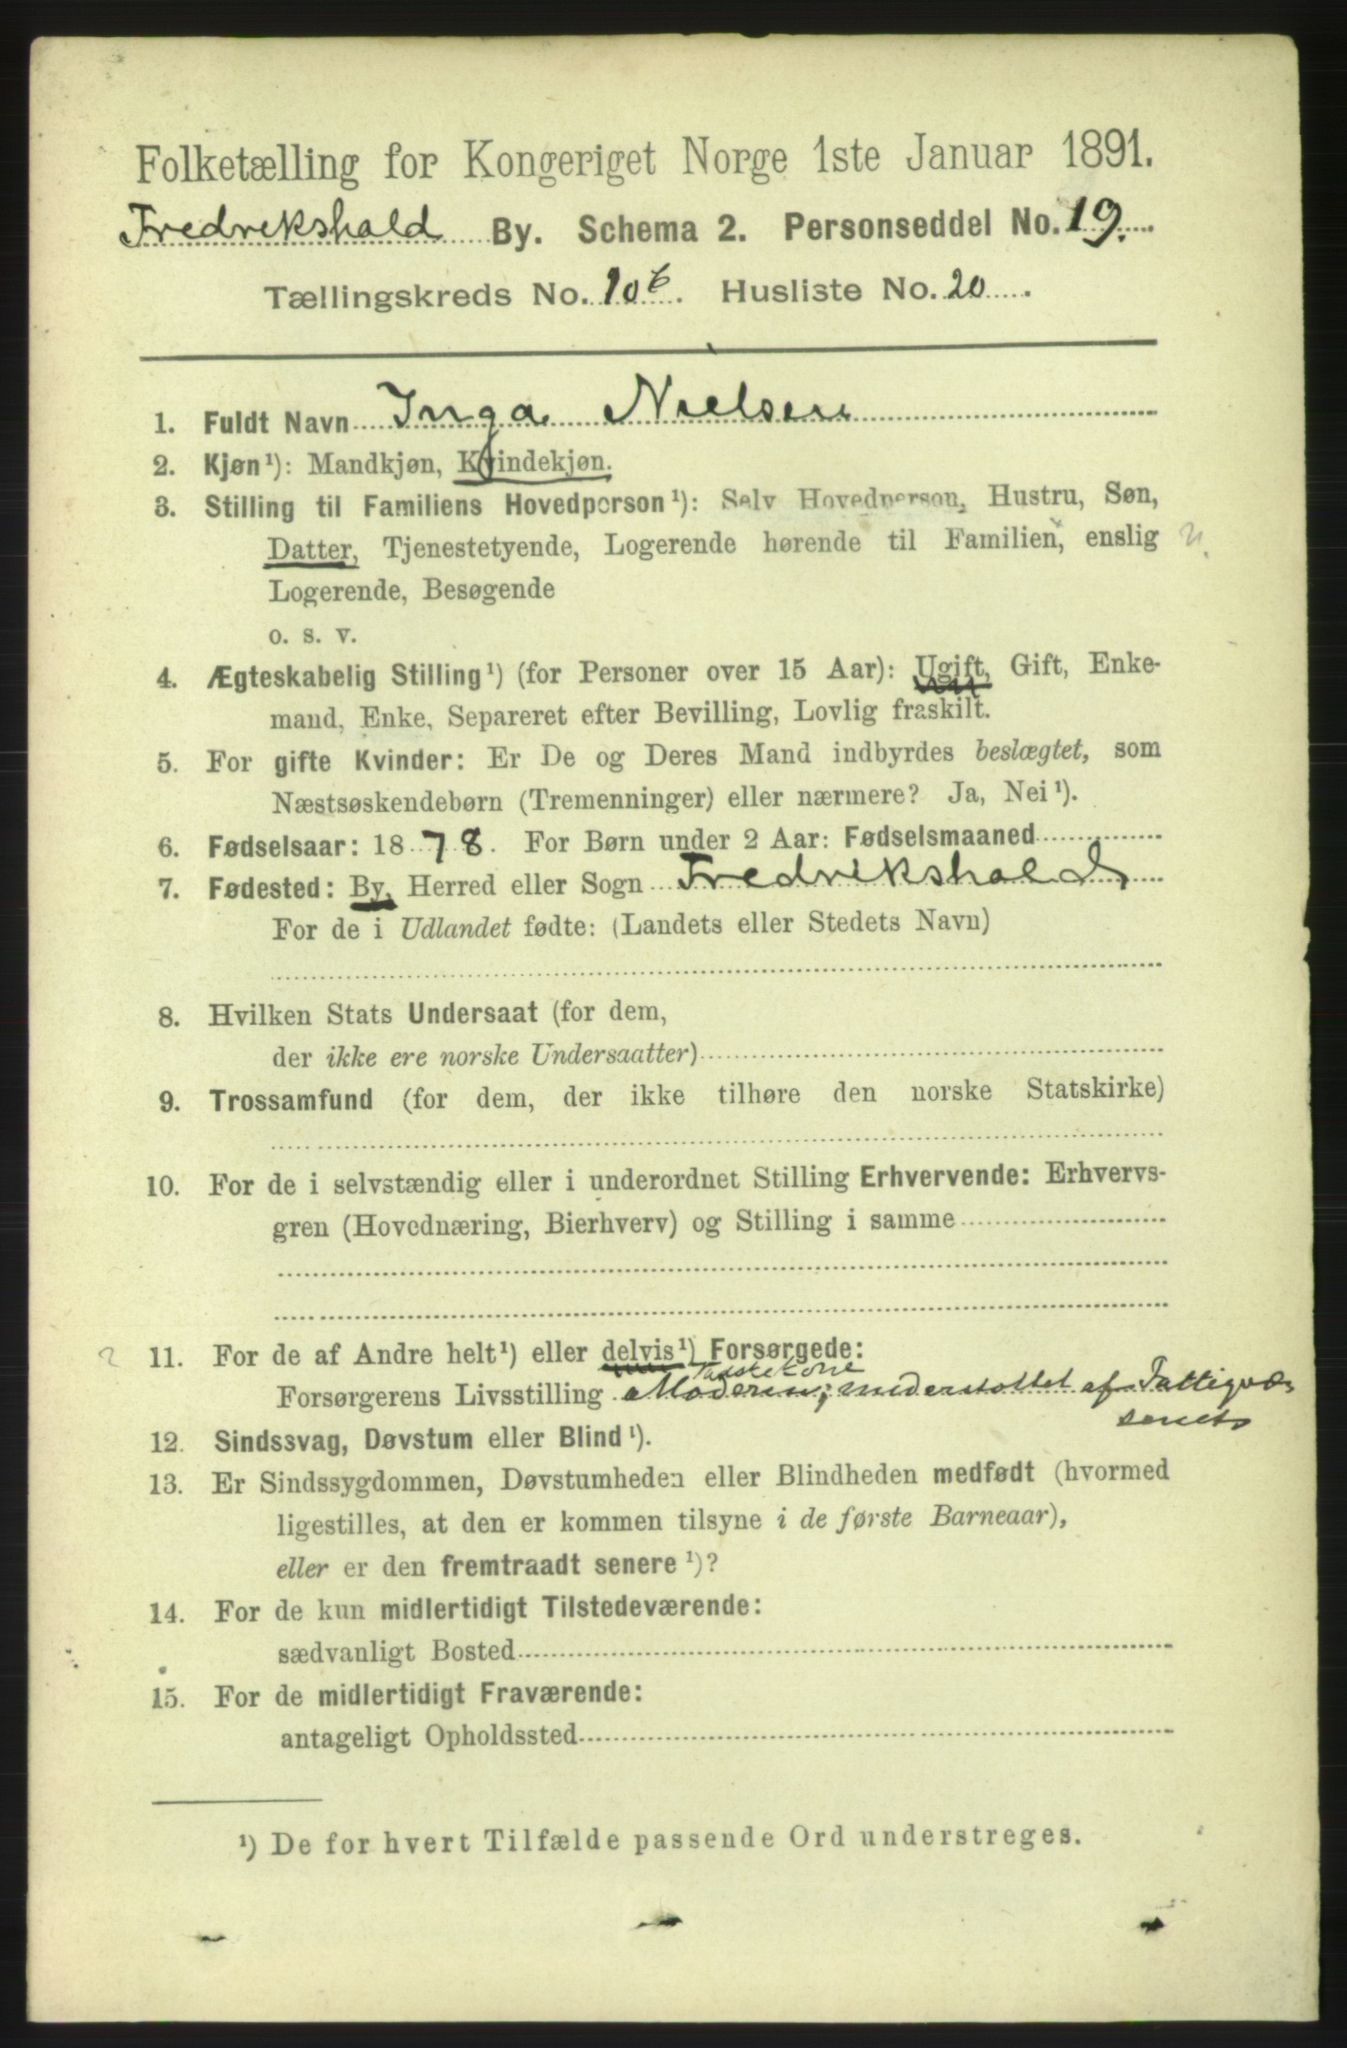 Folketælling for Kongeriget Norge 1ste Januar 1891.
Fredrikshald By. Schema 2. Personseddel No. 19.
Tællingskreds No. 10 b. Husliste No. 20.
1. Fuldt Navn Inga Nielsen
2. Kjøn¹): Mandkjøn, Kvindekjøn.
3. Stilling til Familiens Hovedperson¹): Selv Hovedperson, Hustru, Søn,
Datter, Tjenestetyende, Logerende hørende til Familien, enslig
Logerende, Besøgende
o. s. v.
4. Ægteskabelig Stilling¹) (for Personer over 15 Aar): Ugift, Gift, Enke-
mand, Enke, Separeret efter Bevilling, Lovlig fraskilt.
5. For gifte Kvinder: Er De og Deres Mand indbyrdes beslægtet, som
Næstsøskendebørn (Tremenninger) eller nærmere? Ja, Nei¹).
6. Fødselsaar: 1878. For Børn under 2 Aar: Fødselsmaaned
7. Fødested: By, Herred eller Sogn Fredrikshald
For de i Udlandet fødte: (Landets eller Stedets Navn)
8. Hvilken Stats Undersaat (for dem,
der ikke ere norske Undersaatter)
9. Trossamfund (for dem, der ikke tilhøre den norske Statskirke)
10. For de i selvstændig eller i underordnet Stilling Erhvervende: Erhvervs-
gren (Hovednæring, Bierhverv) og Stilling i samme
11. For de af Andre helt¹) eller delvis¹) Forsørgede:
Forsørgerens Livsstilling Moderen; understøttet af Fattigvæ-
senet
12. Sindssvag, Døvstum eller Blind¹).
13. Er Sindssygdommen, Døvstumheden eller Blindheden medfødt (hvormed
ligestilles, at den er kommen tilsyne i de første Barneaar),
eller er den fremtraadt senere¹)?
14. For de kun midlertidigt Tilstedeværende:
sædvanligt Bosted
15. For de midlertidigt Fraværende:
antageligt Opholdssted
¹) De for hvert Tilfælde passende Ord understreges.